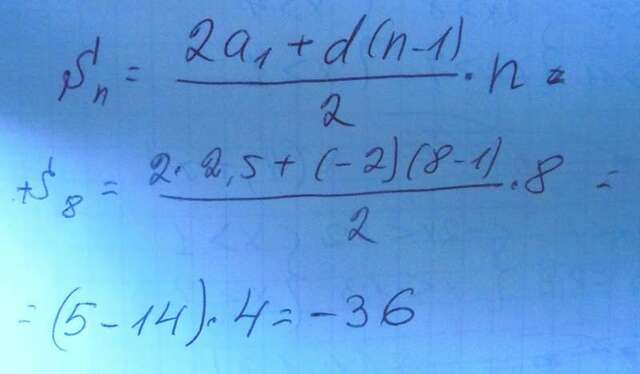 Sₙ = (2a₁ + d(n-1))/2 · n =
S₈ = (2·2,5 + (-2)(8-1))/2 · 8 =
= (5-14)·4 = -36